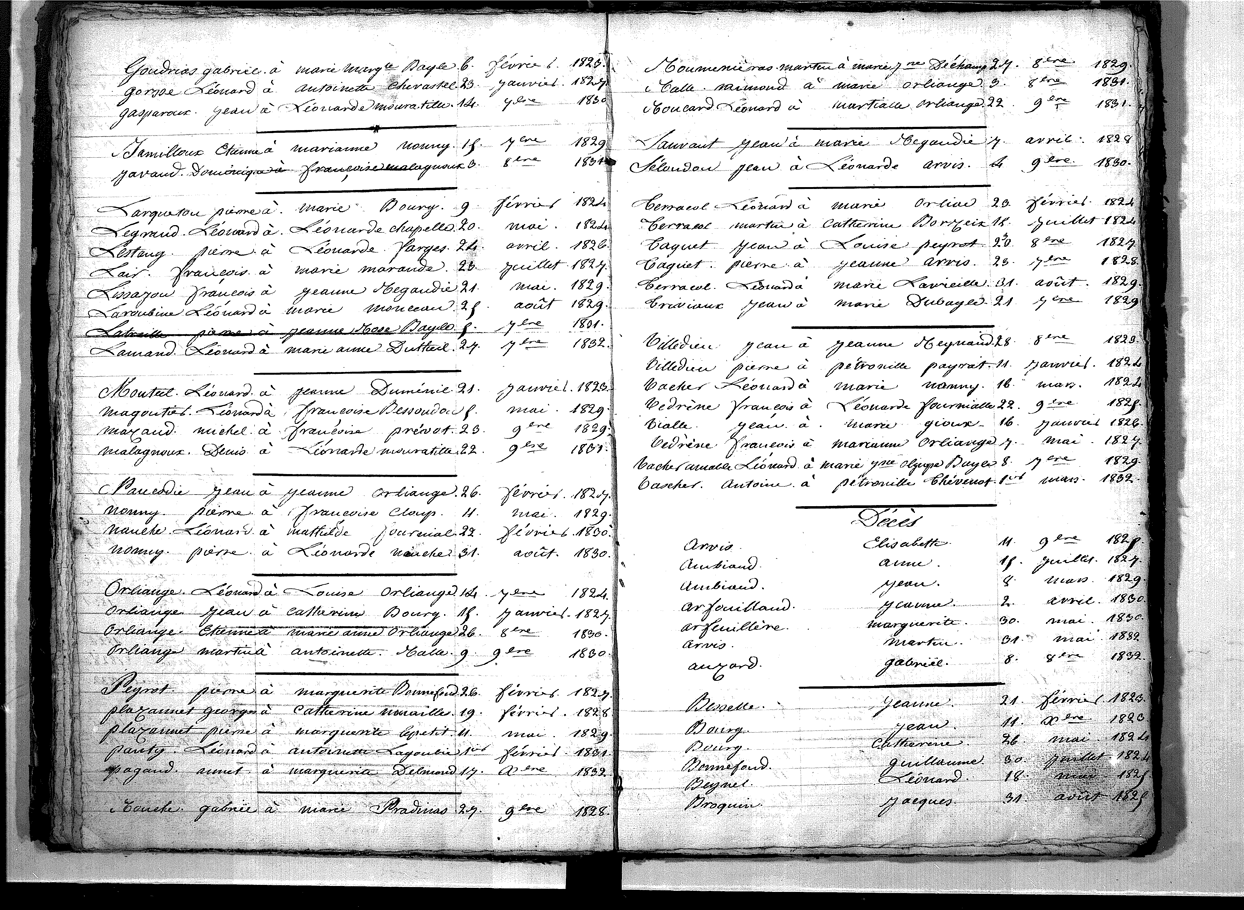 Goudrias gabriel à marie margte Bayle 6 février 1823.
gorsse Léonard à antoinette Chevastel 23 janvier 1827
gasparoux jean à Léonarde mouratille 14 7bre 1830
Jamilloux Etienne à marianne nonny 15 7bre 1829
javaud Dominique à françoise malagnoux 3. 8bre 1831
Larqueton pierre à marie Bourg. 9 février 1824
Legrand Léonard à Léonarde chapelle 20. mai 1824
Lestang pierre à Léonarde farges 24. avril 1826
Lair françois à marie marande 23. juillet 1827.
Lissajou françois à jeanne Megaudie 21. mai 1829.
Laroubine Léonard à marie monceau 25 août 1829.
Latreille pierre à jeanne Rose Bayle 5. 7bre 1831.
Lamand Léonard à marie anne Dutheil 27. 7bre 1832.
Monteil Léonard à jeanne Duménil 21. janvier 1823.
magoutier Léonard à françoise Bessoudou 5. mai 1829.
mazaud michel à françoise prévot 23. 9bre 1829.
malagnoux Denis à Léonarde mouratille 22. 9bre 1831.
Paucodie jean à jeanne orliange 26. février 1827.
nonny pierre à françoise Cloup 11. mai 1829.
nauche Léonard à mathilde fournial 22. février 1830.
nonny pierre à Léonarde nauche 31. août 1830.
Orliange Léonard à Louise orliange 14. 7bre 1824.
orliange jean à Catherine Bourg. 15 janvier 1827.
orliange Etienne à marie anne orliange 26. 8bre 1830.
orliange martin à antoinette Malle 9 9bre 1830.
Peyrot pierre à marguerite Bonnefond 26. février 1827
plazannet george à Catherine miraille 19. février 1828
plazannet pierre à marguerite Lepetit 11. mai 1829
pauty Léonard à antoinette Lagoubie 1er février 1831
pagaud annet à marguerite Delmond 17. Xbre 1832.
Rouche gabriel à marie Pradinas 27. 9bre 1828.
Roumeniéras martin à marie jne Déchamp 27. 8bre 1829.
Malle raimond à marie orliange 3. 8bre 1831.
Roucard Léonard à martialle orliange 22. 9bre 1831.
Sauvant jean à marie Megaudie 7. avril 1828
Séloudou jean à Léonarde arvis. 4 9bre 1830.
Terracol Léonard à marie orliac 23. février 1824
Terracol martin à Catherine Borzeix 15. juillet 1824
Taguet jean à Louise peyrot 20. 8bre 1827
Taguet pierre à jeanne arvis. 23. 7bre 1828.
Terracol Léonard à marie Lavieille 31. août 1829.
Triviaux jean à marie Dubayle 21 7bre 1829
Villedieu jean à jeanne Meynaud 28. 8bre 1823.
Villedieu pierre à pétronille payrot 11. janvier 1824
Vacher Léonard à marie nonny. 16. mars. 1824
Vedrène françois à Léonarde fournialle 22. 9bre 1825.
Vialle jean à marie gioux. 16. janvier 1826.
Vedrène françois à marianne orliange 7. mai 1827.
Vacher aimable Léonard à marie jne olympe Bayle 8. 7bre 1829.
Vascher Antoine à pétronille Thévenot 1er mars. 1832.
Décès
Arvis. Elisabeth 11. 9bre 1825
Ambiaud. anne. 15. juillet. 1827.
Ambiaud. jean. 8. mars. 1829.
arfouilland. jeanne. 2. avril. 1830.
arfeuillère. marguerite. 30. mai. 1830.
arvis. martin. 31. mai 1832
auzard. gabriel. 8. 8bre 1832.
Besselle. jeanne. 21. février 1823.
Bourg. jean. 11. Xbre 1823.
Bourg. Catherine. 26 mai. 1824
Bonnefond. guillaume 30. juillet 1824
Beynel. Léonard. 18. mai 1825
Broquin. Jacques. 31. août 1825